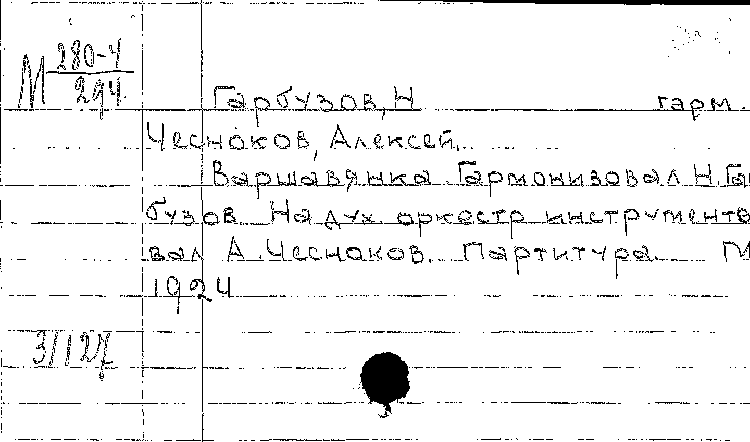 М 280-4
294
Гарбузов, Н гарм.
Чесноков, Алексей.
Варшавянка. Гармонизовал Н. Гар
бузов. На дух. оркестр инструменто
вал А. Чесноков. Партитура. М
1924
3/127